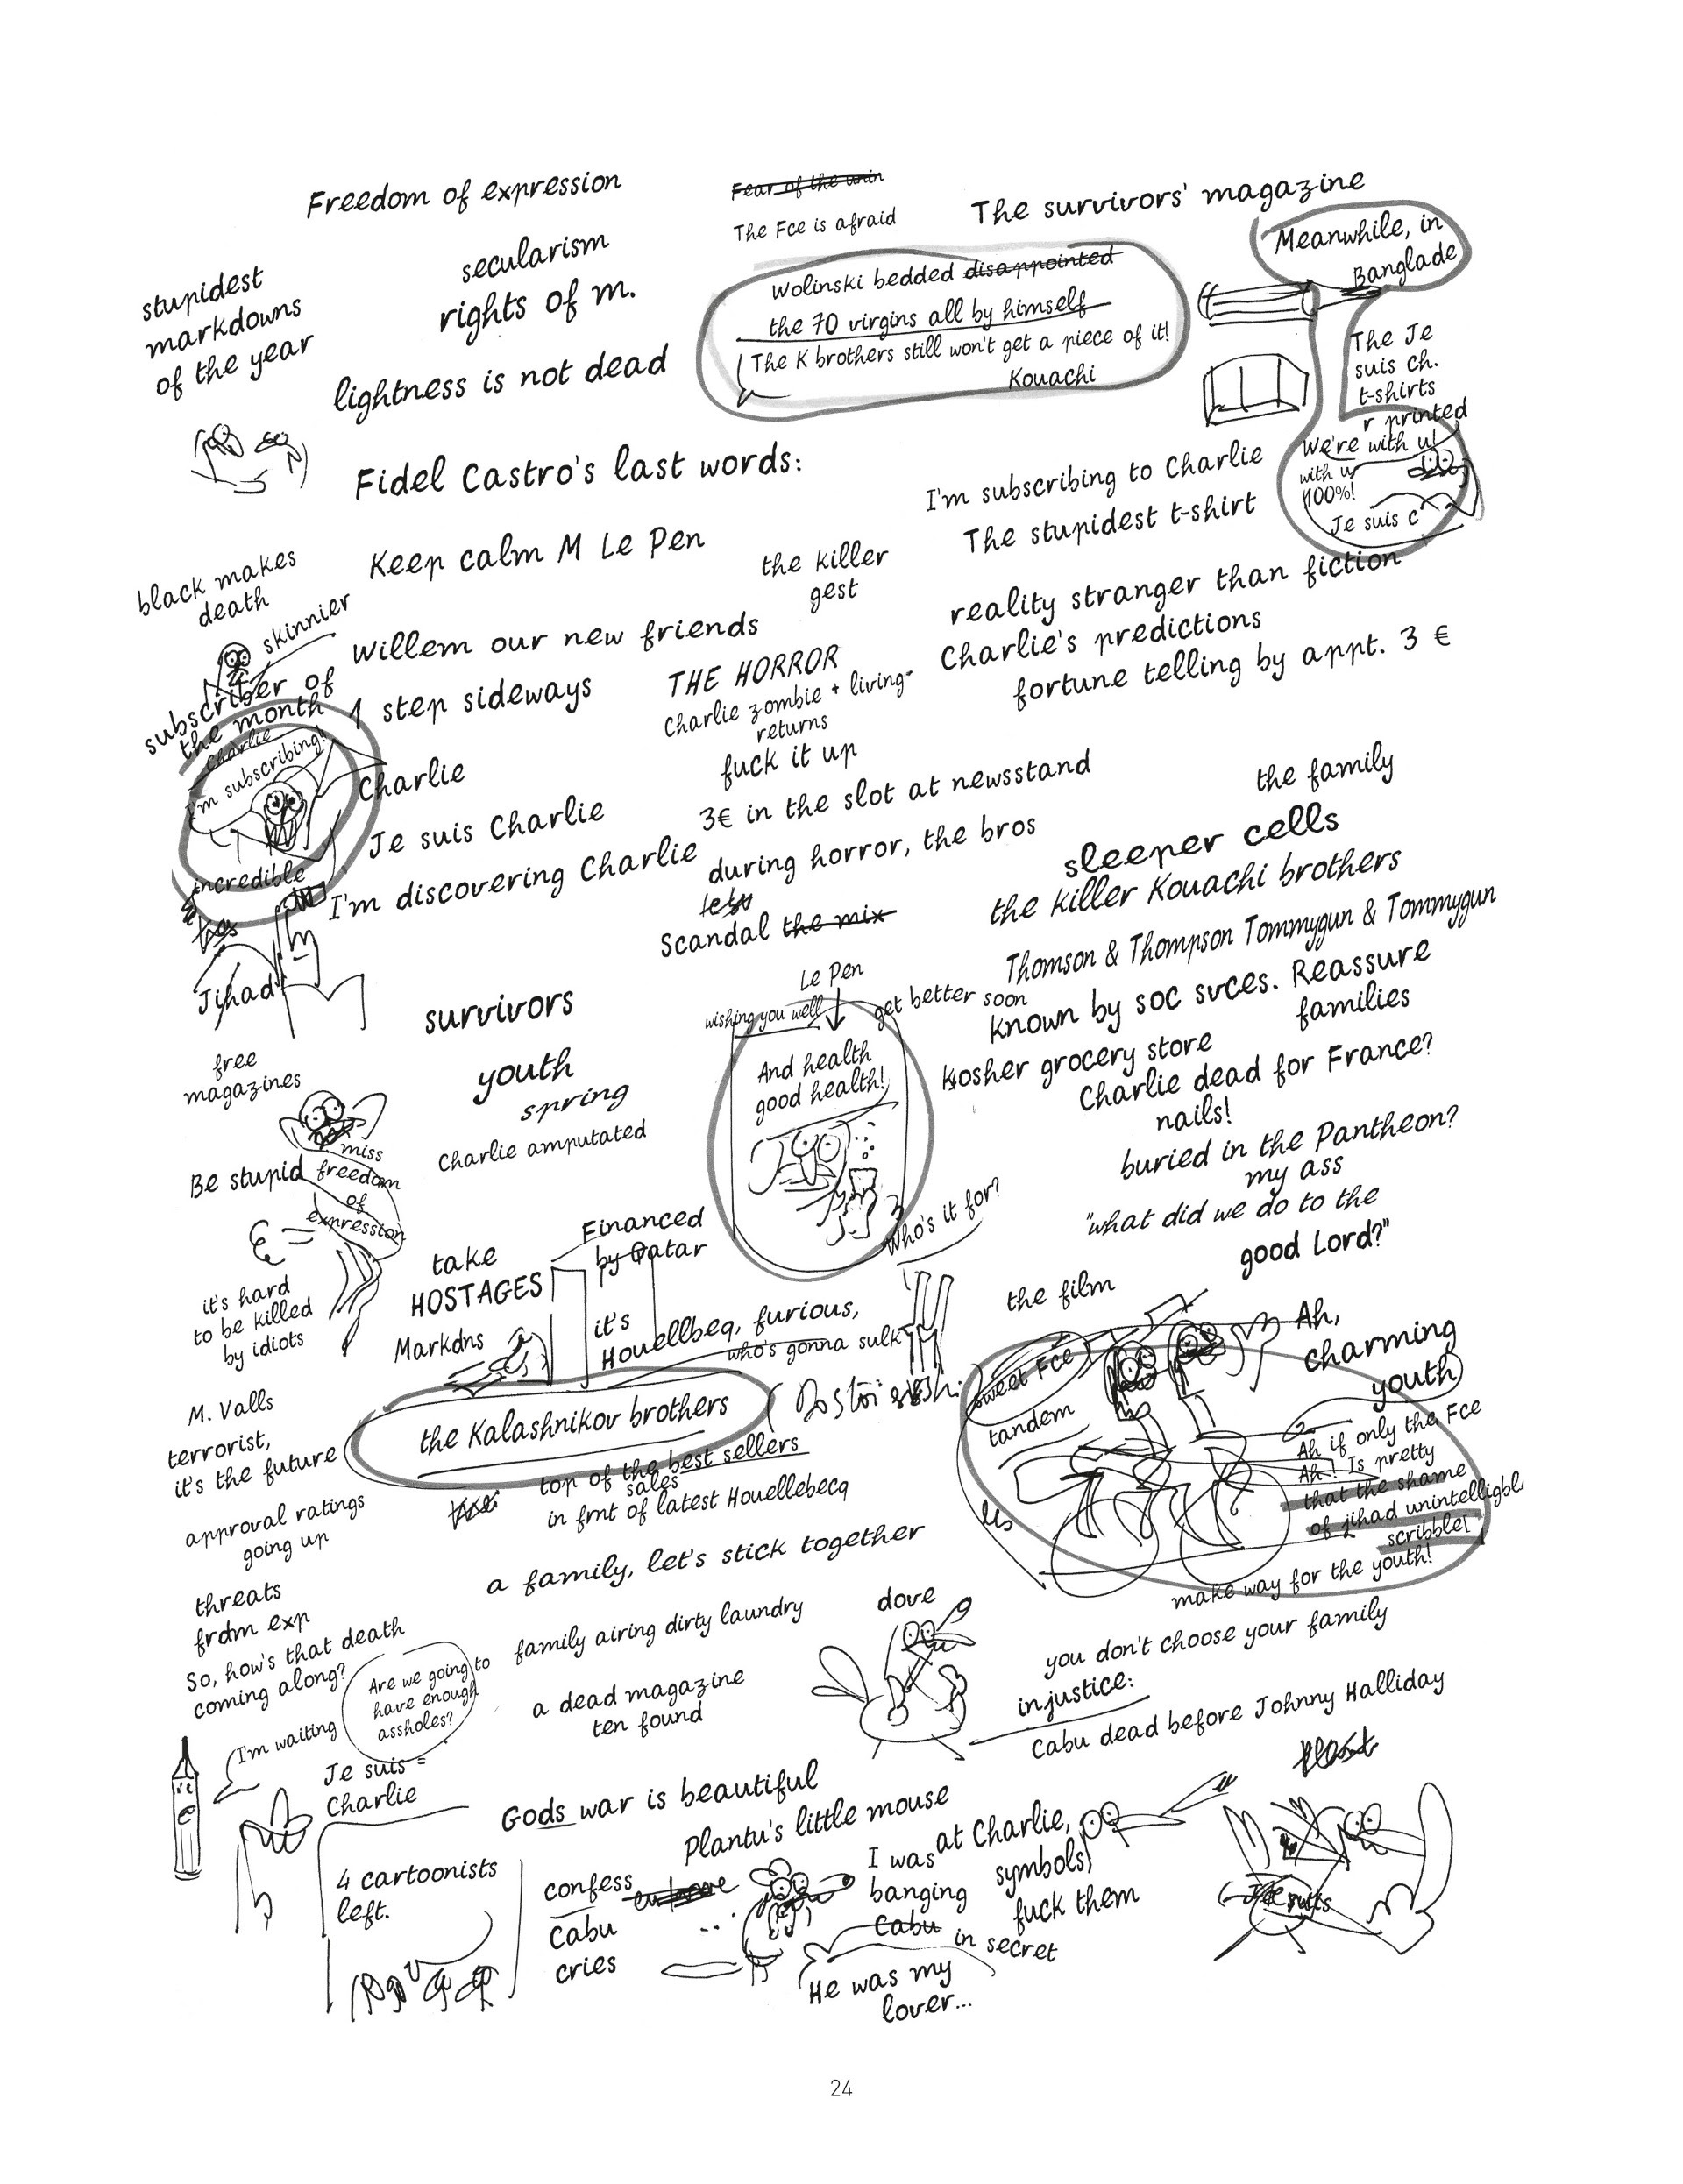 Freedom of expression
Fear of the unin
The Fce is afraid
The survivors' magazine
Meanwhile, in
Banglade
stupidest
markdowns
of the year
secularism
rights of m.
lightness is not dead
Wolinski bedded disappointed
the 70 virgins all by himself
The K brothers still won't get a piece of it!
Kouachi
The Je
suis ch.
t-shirts
r printed
We're with u!
with u
100%!
Je suis c
Fidel Castro's last words:
I'm subscribing to Charlie
The stupidest t-shirt
black makes
death
skinnier
Keep calm M Le Pen
the killer
gest
reality stranger than fiction
Charlie's predictions
fortune telling by appt. 3 €
Willem our new friends
1 step sideways
THE HORROR
Charlie zombie + living-
returns
fuck it up
subscriber of
the month
Charlie
I'm subscribing!
incredible
Charlie
Je suis Charlie
I'm discovering Charlie
3€ in the slot at newsstand
during horror, the bros
Scandal the mix
the family
sleeper cells
the killer Kouachi brothers
Thomson & Thompson Tommygun & Tommygun
known by soc svces. Reassure
families
Kosher grocery store
Charlie dead for France?
nails!
buried in the Pantheon?
my ass
"what did we do to the
good Lord?"
Jihad
survivors
youth
spring
Charlie amputated
Le Pen
wishing you well
get better soon
And health
good health!
Who's it for?
free
magazines
miss
freedom
of
expression
Be stupid
it's hard
to be killed
by idiots
take
HOSTAGES
Markdns
Financed
by Qatar
it's
Houellbeq, furious,
who's gonna sulk
the film
sweet Fce
tandem
Ah,
charming
youth
Ah if only the Fce
Ah! Is pretty
that the shame
of jihad unintelligbl
scribble
make way for the youth!
M. Valls
terrorist,
it's the future
the Kalashnikov brothers
top of the best sellers
sales
in frnt of latest Houellebecq
approval ratings
going up
a family, let's stick together
threats
frdm exp
So, how's that death
coming along?
Are we going to
have enough
assholes?
I'm waiting
family airing dirty laundry
a dead magazine
ten found
dove
you don't choose your family
injustice:
Cabu dead before Johnny Halliday
Je suis =
Charlie
4 cartoonists
left.
Gods war is beautiful
Plantu's little mouse
confess
Cabu
cries
I was at Charlie,
banging
Cabu in secret
symbols
fuck them
He was my
lover...
Je suis
24